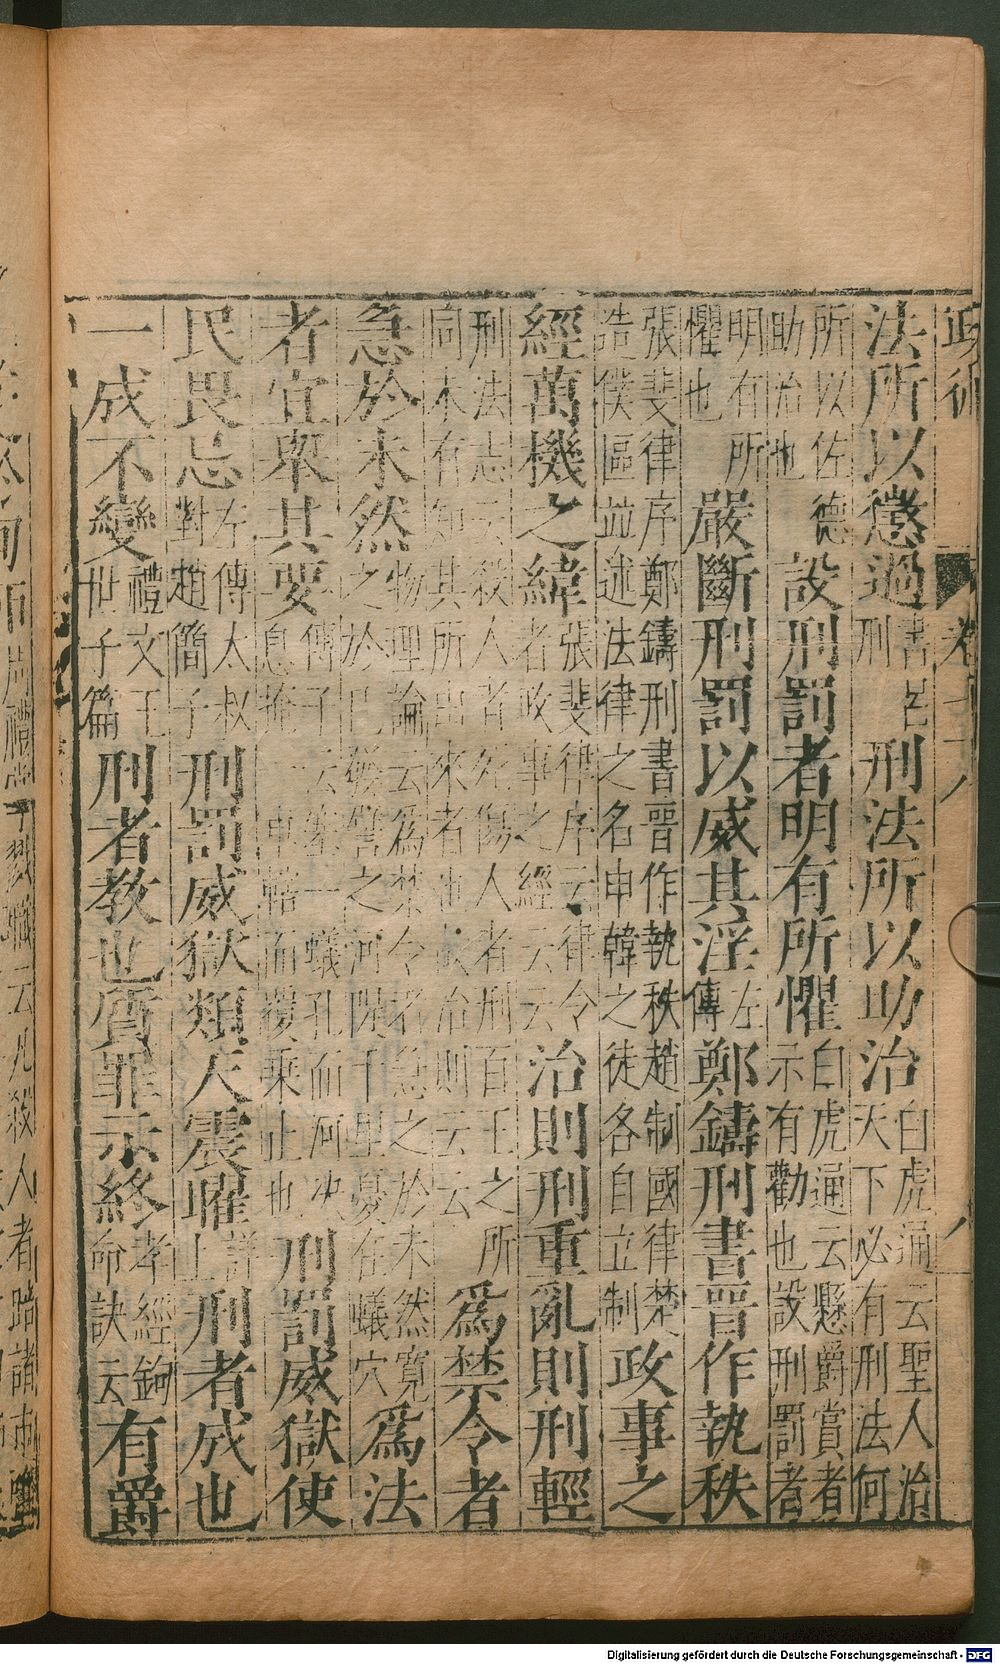 政術 卷
法所以懲過書呂刑刑法所以助治白虎通云聖人治天下必有刑法何
所以佐德助治也設刑罰者明有所懼白虎通云懸爵賞者示有勸也設刑罰者
明有所懼也嚴斷刑罰以威其淫左傳鄭鑄刑書晉作執秩
張斐律序鄭鑄刑書晉作執秩趙制國律楚造僕區並述法律之名申韓之徒各自立制政事之
經萬機之緯張斐律序云律令者政事之經云云治則刑重亂則刑輕
刑法志云殺人者死傷人者刑百王之所同未有知其所出來者也故治則云云為禁令者
急於未然物理論云為禁令者急之於未然寬之於已發譬之河隄千里憂在蟻穴為法
者宜舉其要傳子云塞一蟻孔而河決息施一車轄而覆乘止也刑罰威獄使
民畏忌左傳太叔對趙簡子刑罰威獄類天震曜詳上刑者成也
一成不變禮文王世子篇刑者教也質罪示終孝經鉤命訣云有爵
云凡殺人者踣諸市
Digitalisierung gefördert durch die Deutsche Forschungsgemeinschaft - DFG